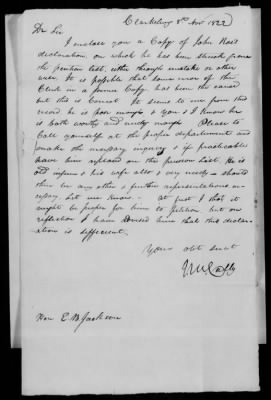 Clarksburg 8th Nov 1822
Dr Sir
I inclose you a Copy of John Ross
declaration, on which he has been struck from
the pension list, either through mistake or other
wise. It is possible that some error of the
Clerk in a former Copy has been the cause
but this is Correct. It seems to me from this
record he is poor enough & you & I know he
is both worthy and needy enough Please to
Call yourself at the proper department and
make the necessary inquiry & if practicable
have him replaced on the pension list. He is
old infirm & his wife also & very needy — should
there be any other & further representations ne=
cessary let me know — at first I thot it
might be proper for him to petition, but on
reflection I have advised him that this declar=
ation is sufficient.
Yours obt servt
Hon E B Jackson